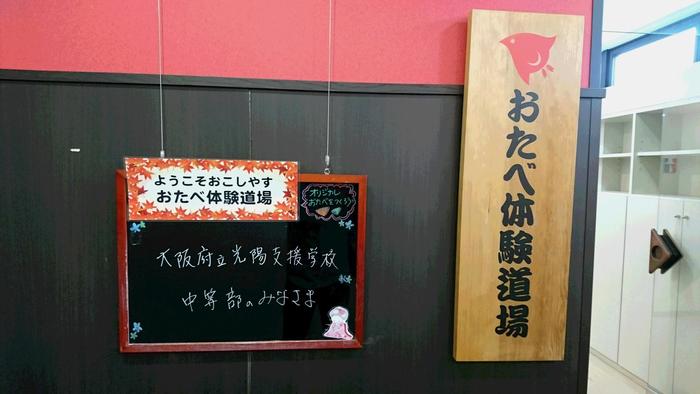 ようこそおこしやす
おたべ体験道場
オリジナル
おたべをつくろう
大阪府立光陽支援学校
中等部のみなさま
おたべ体験道場